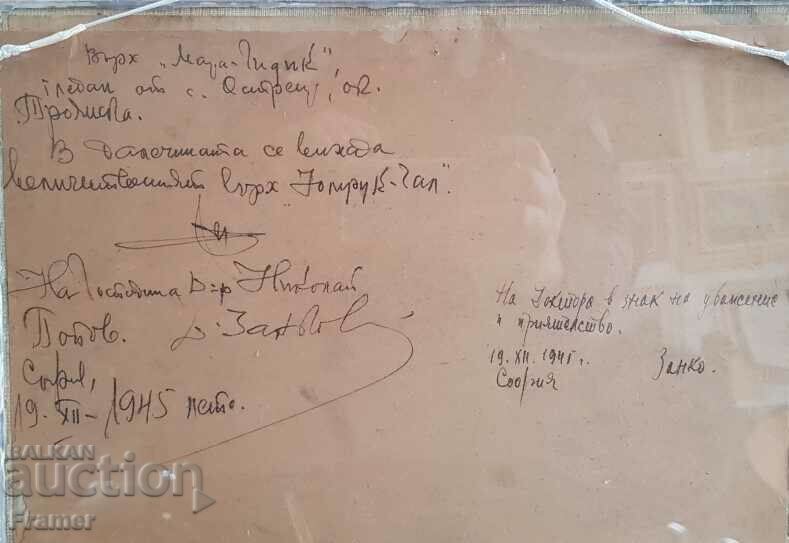 Върх „Мара-Гидик",
гледан от с. Острец, ок.
Троянска.
В далечината се вижда
величественният върх Юмрук-Чал".
На Господина Д-р Николай
Попов.
София,
19. XII - 1945 лето.
На Доктора в знак на уважение
и приятелство.
19. XII. 1945 г.
София
Занко.
BALKAN
auction
Framer